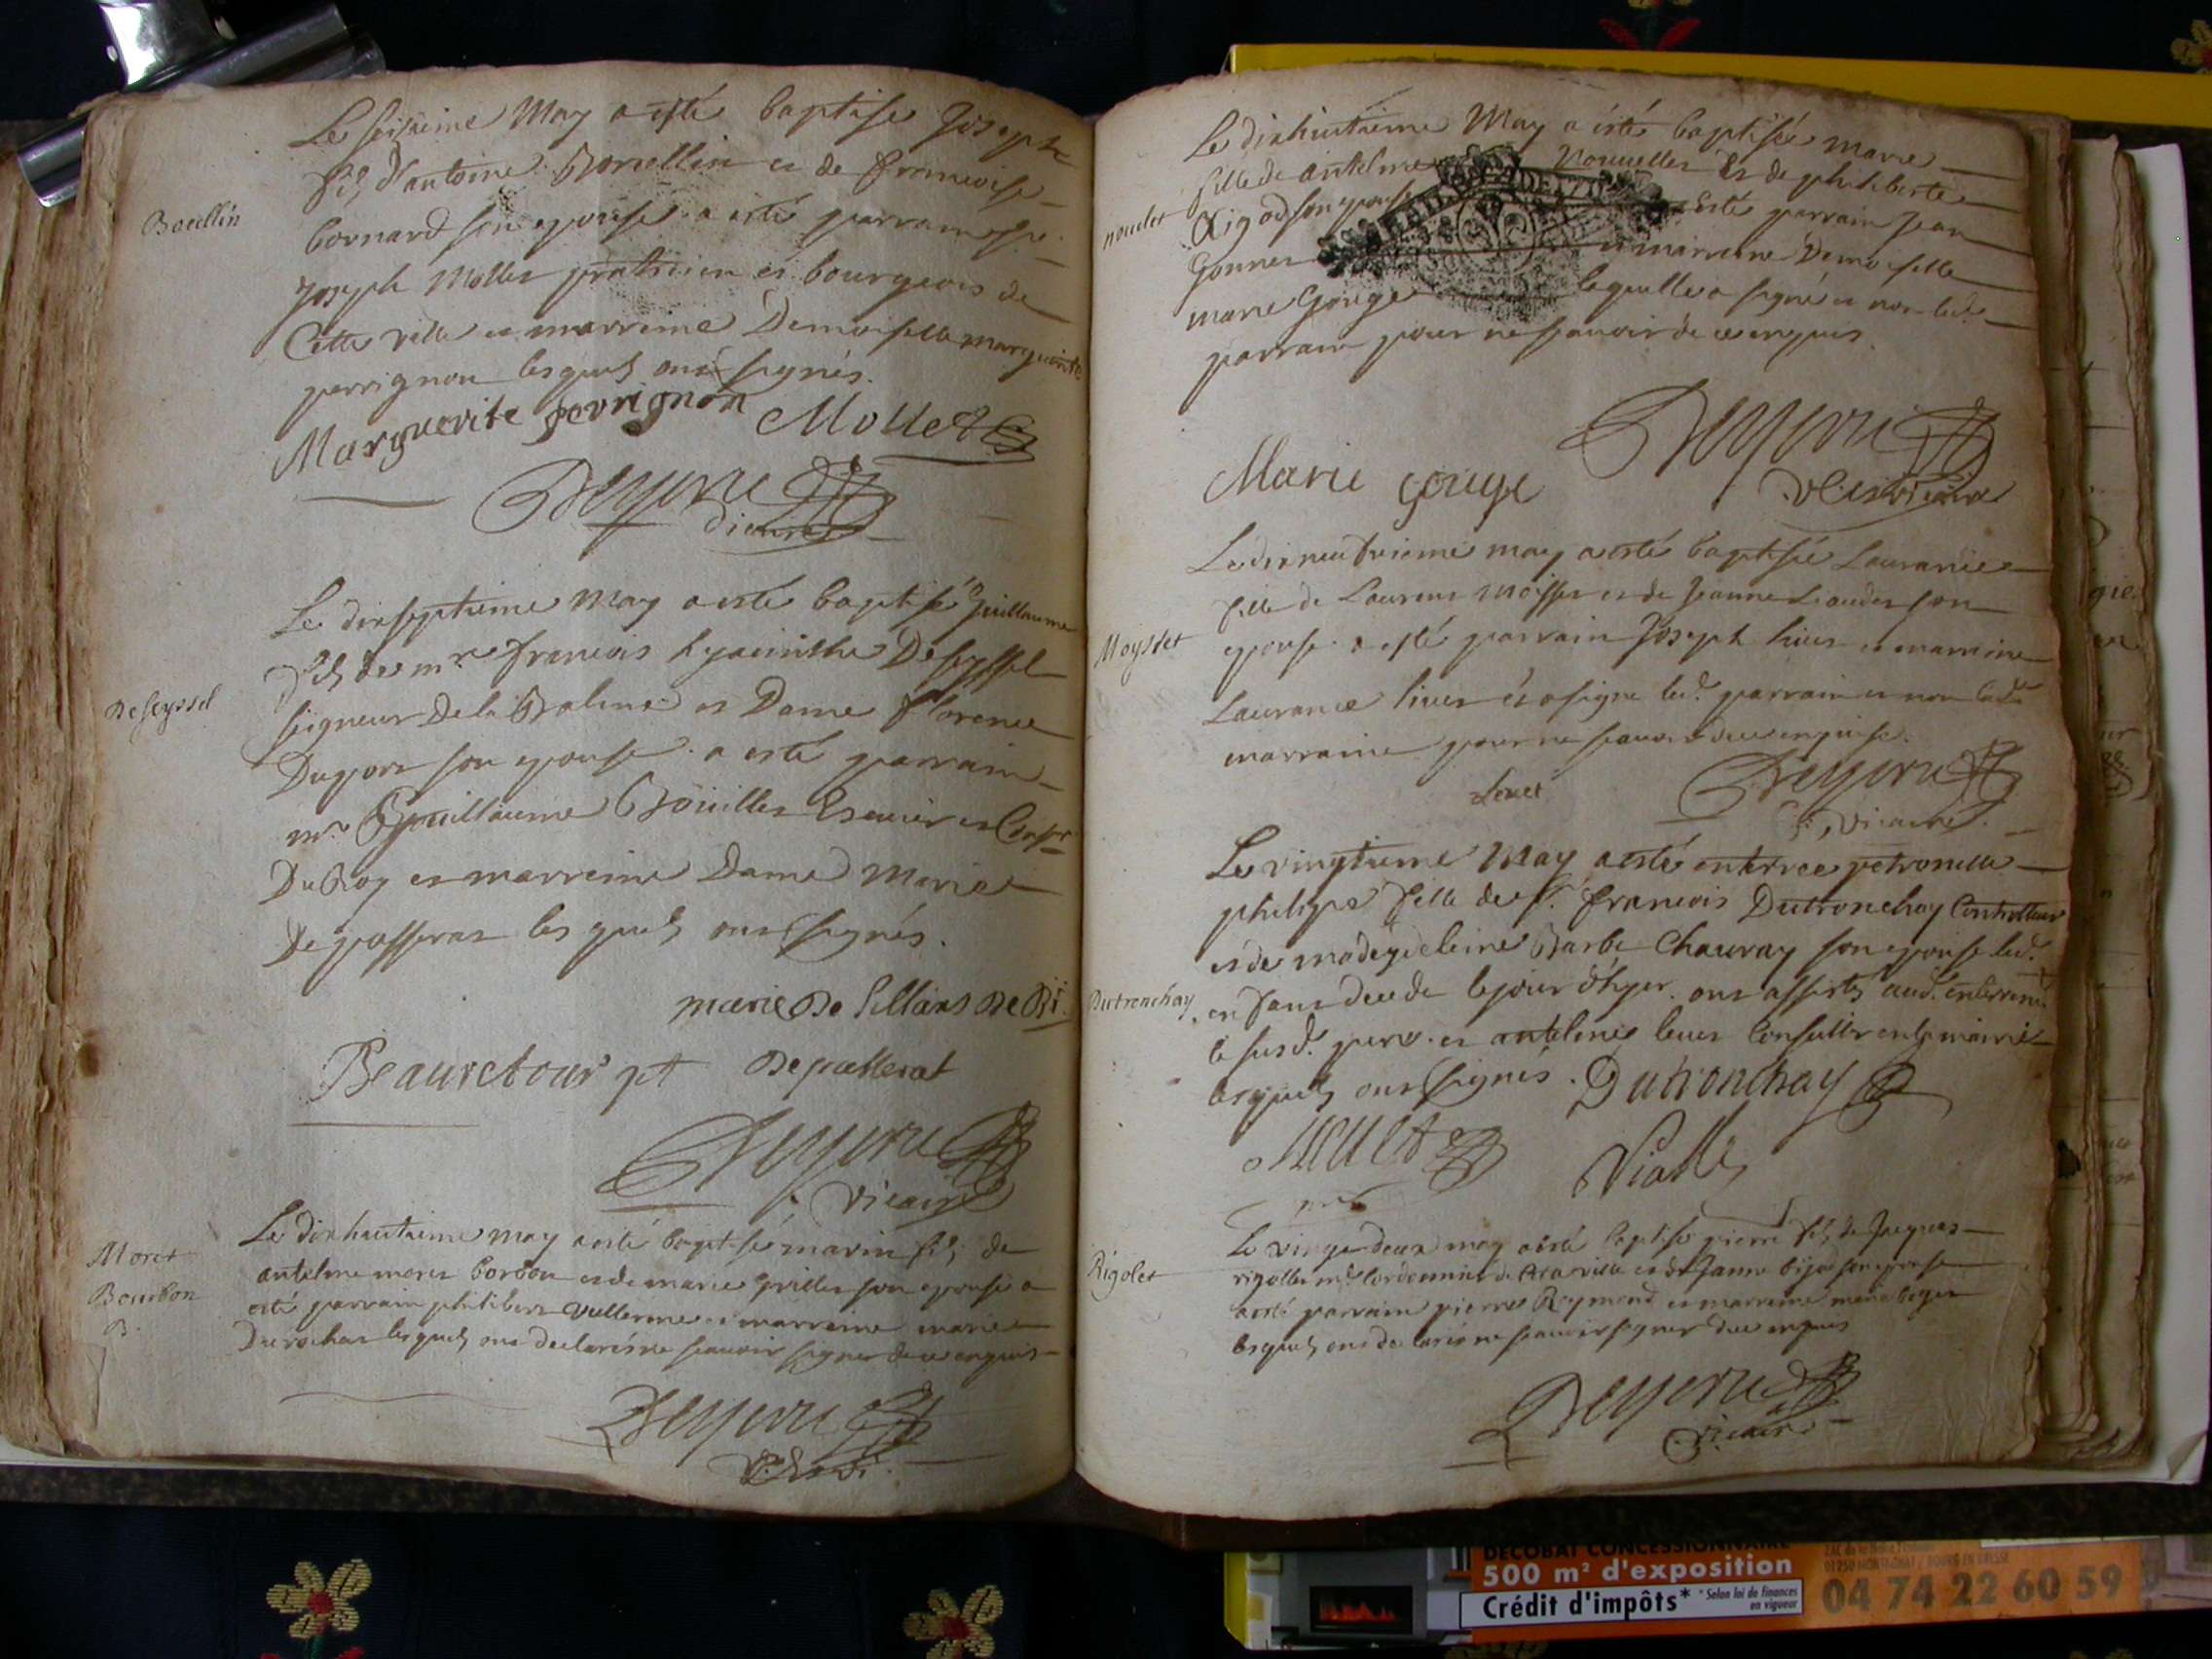 Le seisieme May a esté baptisé Joseph
fils d'antoine Borrellin et de francoise
bornard son epouse a esté parrain sr
Joseph Mollet praticien et bourgeois de
Cette ville et marreine Demoiselle marguerite
perrignon lesquels ont signés.
Marguerite perrignon Mollet
Deyerri
vicaire
Le dixseptieme May a esté baptisé Guillaume
fils de mre francois hyacinthe Deseyssel
seigneur Dela Balme et Dame florence
Duport son epouse a esté parrain
mre Guillaume Boüillet Escuier et Conser
Du Roy et marreine Dame Marie
De passerat les quels ont signés.
marie De Sillans De
Beauretour pt De passerat
Deyerri
vicaire
Le dixhuitieme may a esté baptisé marin fils de
antelme moret borbon et de marie grillet son epouse a
esté parrain philibert vullerme et marreine marie
Durochat lesquels ont declarés ne scauoir signer de ce enquis
Deyerri
Deseyssel
Moret
Bourbon
B.
Le dixhuitieme May a esté baptisée marie
fille de antelme Nouuellet Et de philiberte
Rigod son epouse a Esté parrain Jean
Gonnet et marreine Demoiselle
marie Gouge lequelle a signé et non led.
parrain pour ne scauoir de ce enquis.
Deyerri
Marie gouge
vicaire
Le dixneufvieme may a esté baptisée Laurance
fille de Laurent Moisset et de Jeanne Liaudet son
epouse a esté parrain Joseph liuet et marreine
Laurance liuet et a signé led. parrain et non lad.
marraine pour ne scauoir de ce enquise.
Deyerri
Liuet
vicaire
Le vingtieme May a esté enterrée petronille
philipe fille de sr. francois Dutronchay Controlleur
et de madegdeleine Barbe Chauuay son epouse led.
enfant decedé le jour d'hyer. ont assistés aud. enterrement
le susd. pere et antelme leuet Conseiller en la mairie
lesquels ont signés. Dutronchay
Vialle
Le vingt deux may a esté baptisé pierre fils de Jacques
rigollet me Cordonnier de cette ville et de Janne bijod son epouse
a esté parrain pierre Reymond et marreine marie boget
lesquels ont declarés ne scauoir signer de ce enquis
Deyerri
vicaire
nouelet
Moysset
Dutronchay
Rigolet
DECOBAT CONCESSIONNAIRE
500 m² d'exposition
Crédit d'impôts* * Selon loi de finances
en vigueur
04 74 22 60 59